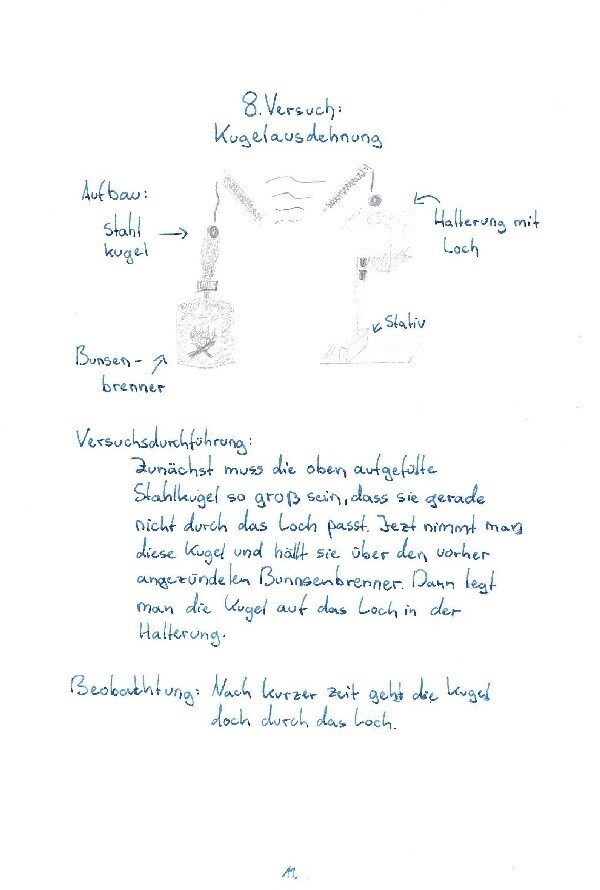 8. Versuch:
Kugelausdehnung
Aufbau:
Stahl
kugel
Halterung mit
Loch
Stativ
Bunsen-
brenner
Versuchsdurchführung:
Zunächst muss die oben aufgefülte
Stahlkugel so groß sein, dass sie gerade
nicht durch das Loch passt. Jezt nimmt man
diese Kugel und hällt sie über den vorher
angezündeten Bunnsenbrenner. Dann legt
man die Kugel auf das Loch in der
Halterung.
Beobachtung: Nach kurzer zeit geht die Kugel
doch durch das Loch.
11.